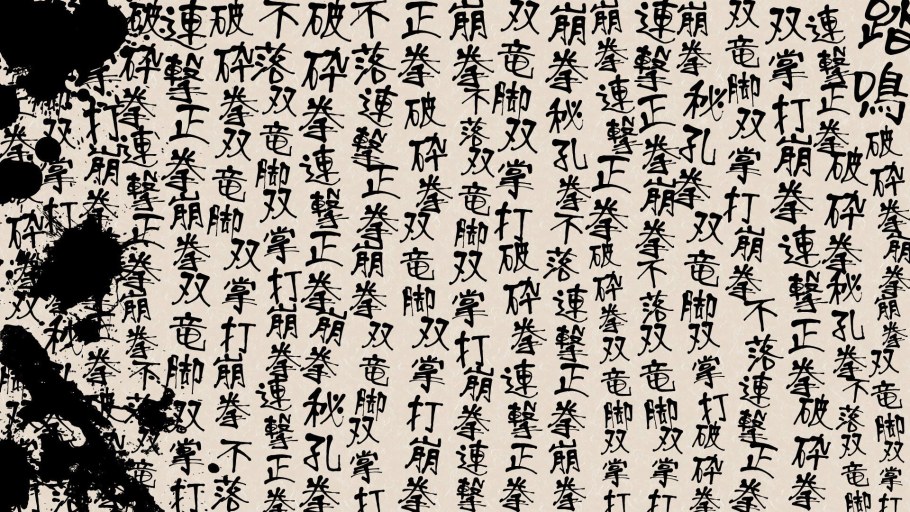 踏鳴破砕拳崩拳崩拳双竜脚双掌打
連撃正拳破砕拳秘孔拳不落双竜脚
双掌打崩拳連撃正拳破砕拳
双竜脚双掌打崩拳不落連撃正拳
崩拳秘孔拳双竜脚双掌打破砕拳
連撃正拳崩拳不落双竜脚双掌打
崩拳連撃正拳破砕拳双竜脚双掌打
崩拳秘孔拳不落連撃正拳崩拳
双竜脚双掌打破砕拳連撃正拳
崩拳不落双竜脚双掌打崩拳連撃
正拳破砕拳双竜脚双掌打崩拳
不落連撃正拳崩拳双竜脚双掌打
破砕拳連撃正拳崩拳秘孔拳
不落双竜脚双掌打崩拳連撃正拳
破砕拳双竜脚双掌打崩拳不落
連撃正拳崩拳双竜脚双掌打
破砕拳連撃正拳崩拳不落双竜
掌打崩拳
双掌打秘
拳破砕拳双脚